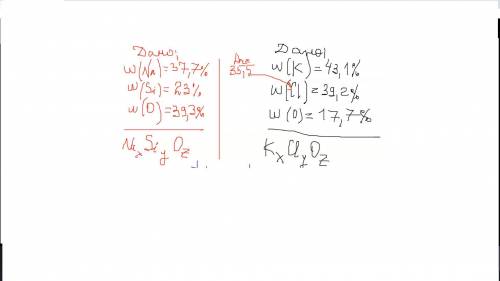 Дано:
w(Na)=37,7%
w(Si)=23%
w(O)=39,3%
NaxSiyOz
35,5
Дано:
w(K)=43,1%
w(Cl)=39,2%
w(O)=17,7%
KxClyOz